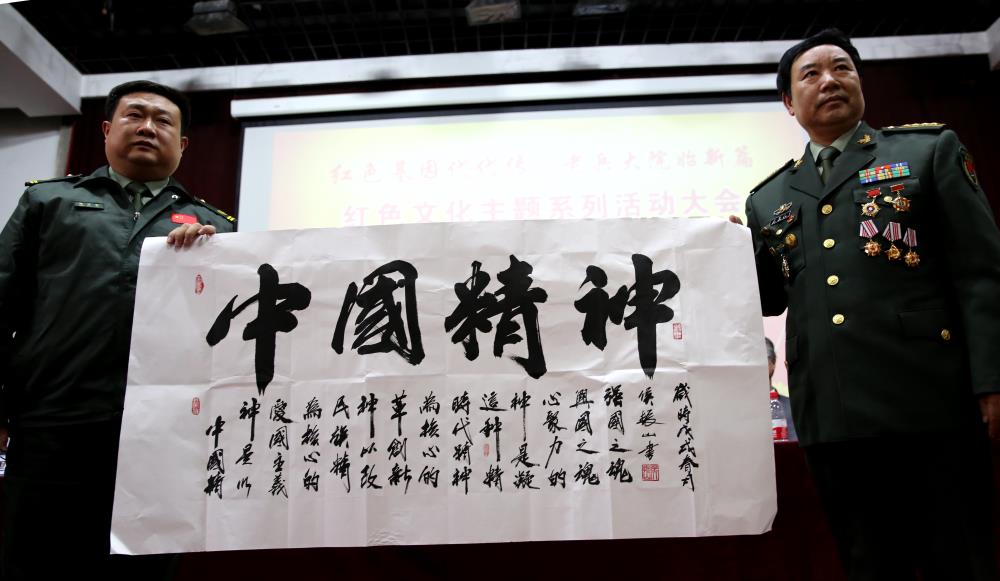 红色基因代代传 老兵大院新篇
红色文化主题系列活动大会
中國精神
中國精
神是以
愛國主義
為核心的
民族精
神以改
革創新
為核心的
時代精神
這种精
神是凝
心聚力的
興國之魂
强國之魂
侯山書
歲時戊戌春月